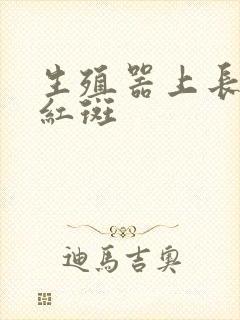 生殖器上長
紅斑
迪馬吉奧